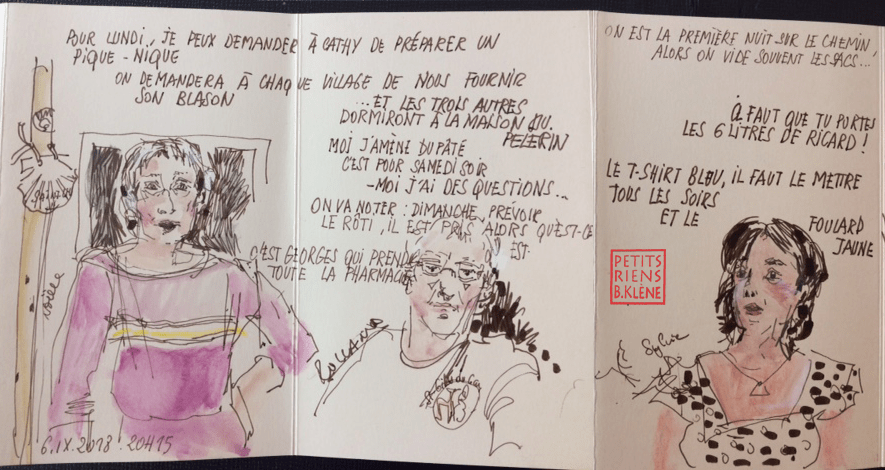 POUR LUNDI, JE PEUX DEMANDER À CATHY DE PRÉPARER UN
PIQUE-NIQUE
ON DEMANDERA À CHAQUE VILLAGE DE NOUS FOURNIR
SON BLASON
...ET LES TROIS AUTRES
DORMIRONT À LA MAISON DU
PELERIN
MOI J'AMÈNE DU PÂTÉ
C'EST POUR SAMEDI SOIR
-MOI J'AI DES QUESTIONS...
ON VA NOTER : DIMANCHE, PRÉVOIR
LE RÔTI, IL EST PRIS ALORS QU'EST-CE
QU'EST
C'EST GEORGES QUI PREND
TOUTE LA PHARMACIE
ON EST LA PREMIÈRE NUIT SUR LE CHEMIN,
ALORS ON VIDE SOUVENT LES SACS...
FAUT QUE TU PORTES
LES 6 LITRES DE RICARD !
LE T-SHIRT BLEU, IL FAUT LE METTRE
TOUS LES SOIRS
ET LE FOULARD
JAUNE
PETITS
RIENS
B.KLÈNE
Sylvie
6.IX.2018. 20H15